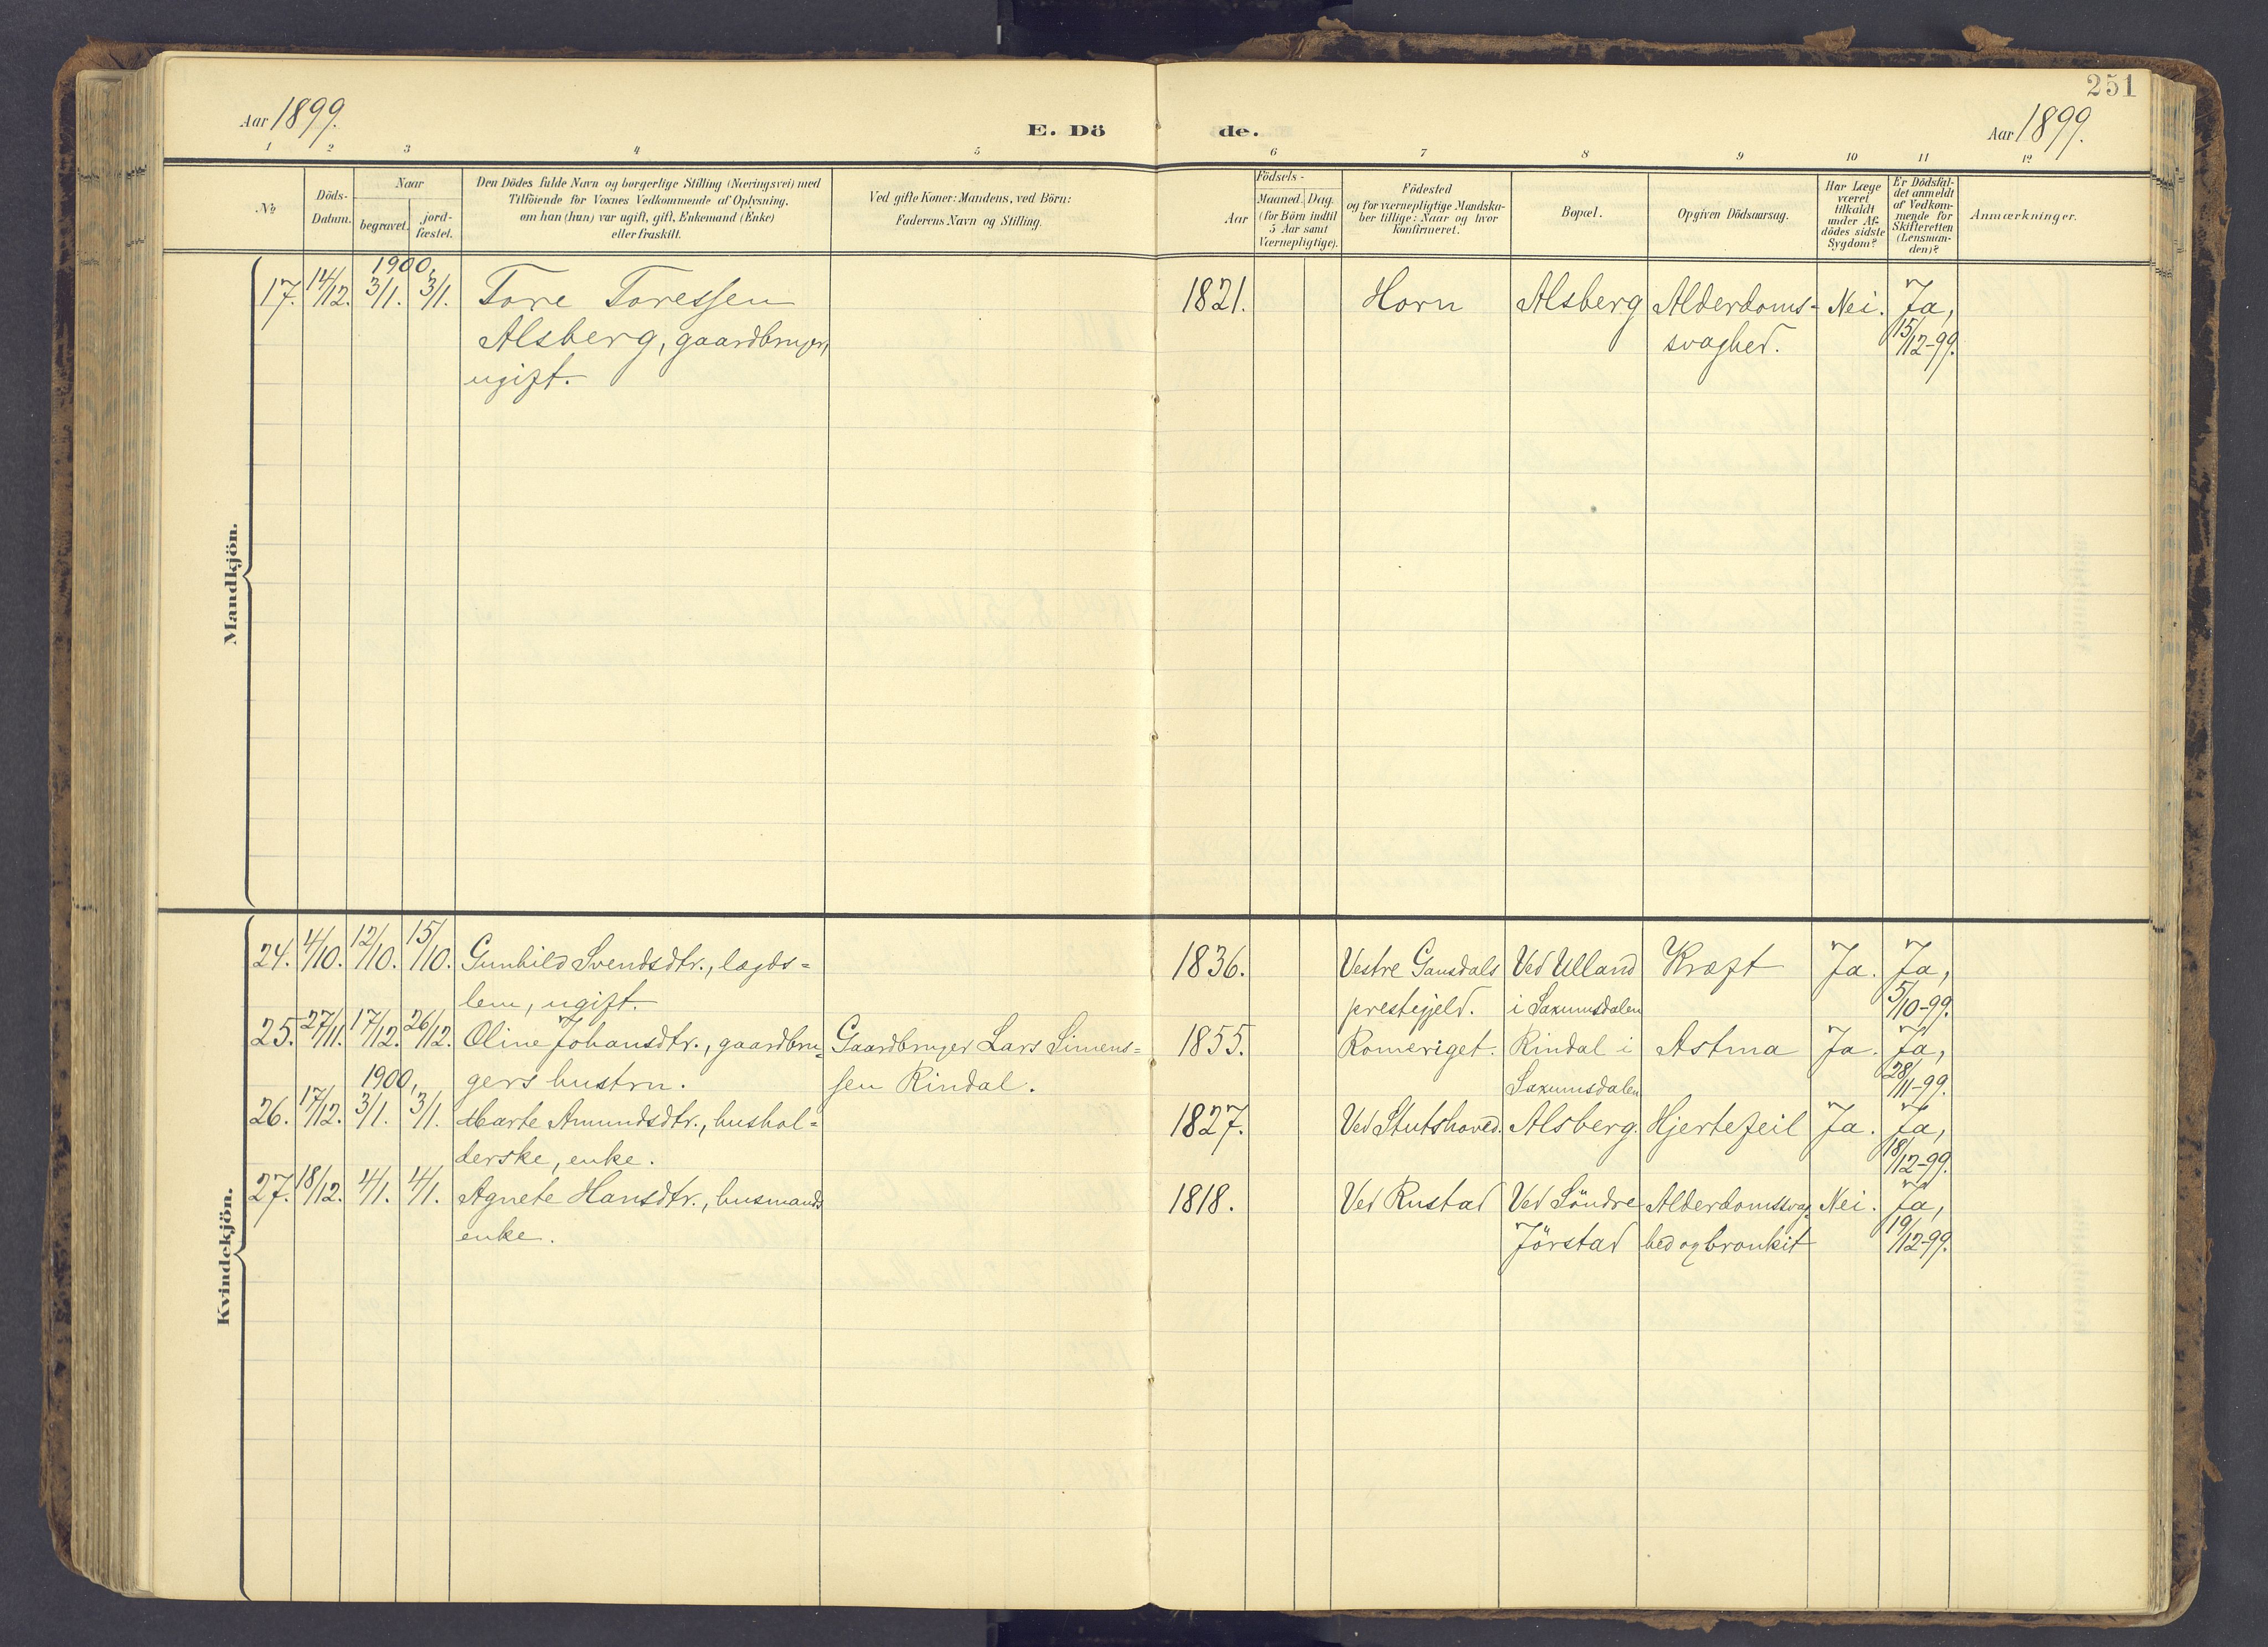 251
Aar 1899.
E. Dö de.
Aar 1899.
1 2 3 4 5 6 7 8 9 10 11 12
No
Döds-
Datum.
Naar
begravet.
jord-
fæstet.
Den Dödes fulde Navn og borgerlige Stilling (Næringsvei) med
Tilföiende for Voxnes Vedkommende af Oplysning,
om han (hun) var ugift, gift, Enkemand (Enke)
eller fraskilt.
Ved gifte Koner: Mandens, ved Börn:
Faderens Navn og Stilling.
Födsels-
Aar
Maaned. Dag.
(for Börn indtil
5 Aar samt
Værnepligtige).
Födested
og for værnepligtige Mandska-
ber tillige: Naar og hvor
konfirmeret.
Bopæl.
Opgiven Dödsaarsag.
Har Læge
været
tilkaldt
under Af-
dödes sidste
Sygdom?
Er Dödsfal-
det anmeldt
af Vedkom-
mende for
Skifteretten
(Lensman-
den)?
Anmærkninger.
Mandkjön.
1900,
17. 14/12. 3/1. 3/1. Tore Toressen 1821. Horn Alsberg Alderdoms- Nei. Ja,
Alsberg, gaardbruger, svaghed. 15/12-99.
ugift.
Kvindekjön.
24. 4/10. 12/10. 15/10. Gunhild Svendsdtr., lægds= 1836. Vestre Gausdals Ved Ulland Kræft Ja. Ja,
lem, ugift. prestegjeld. i Saxumsdalen 5/10-99.
25. 27/11. 17/12. 26/12. Oline Johansdtr., gaardbru= Gaardbruger Lars Simens= 1855. Romeriget. Rindal i Astma Ja. Ja,
1900, gers hustru. sen Rindal. Saxumsdalen 28/11-99.
26. 17/12. 3/1. 3/1. Marte Amundsdtr., hushol= 1827. Ved Stutshoved. Alsberg. Hjertefeil Ja. Ja,
derske, enke. 18/12-99.
27. 18/12. 4/1. 4/1. Agnete Hansdtr., husmands 1818. Ved Rustad Ved Söndre Alderdomssvag= Nei. Ja,
enke. Jörstad hed og bronkit 19/12-99.